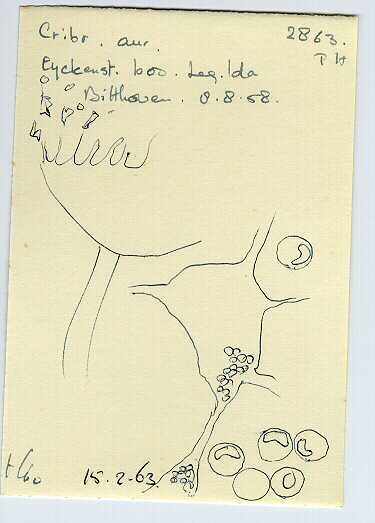 Cribr. aur.
2863.
Eyckenst. bos. Leg. Ida
Bilthoven. 8.8.58.
15.2.63.